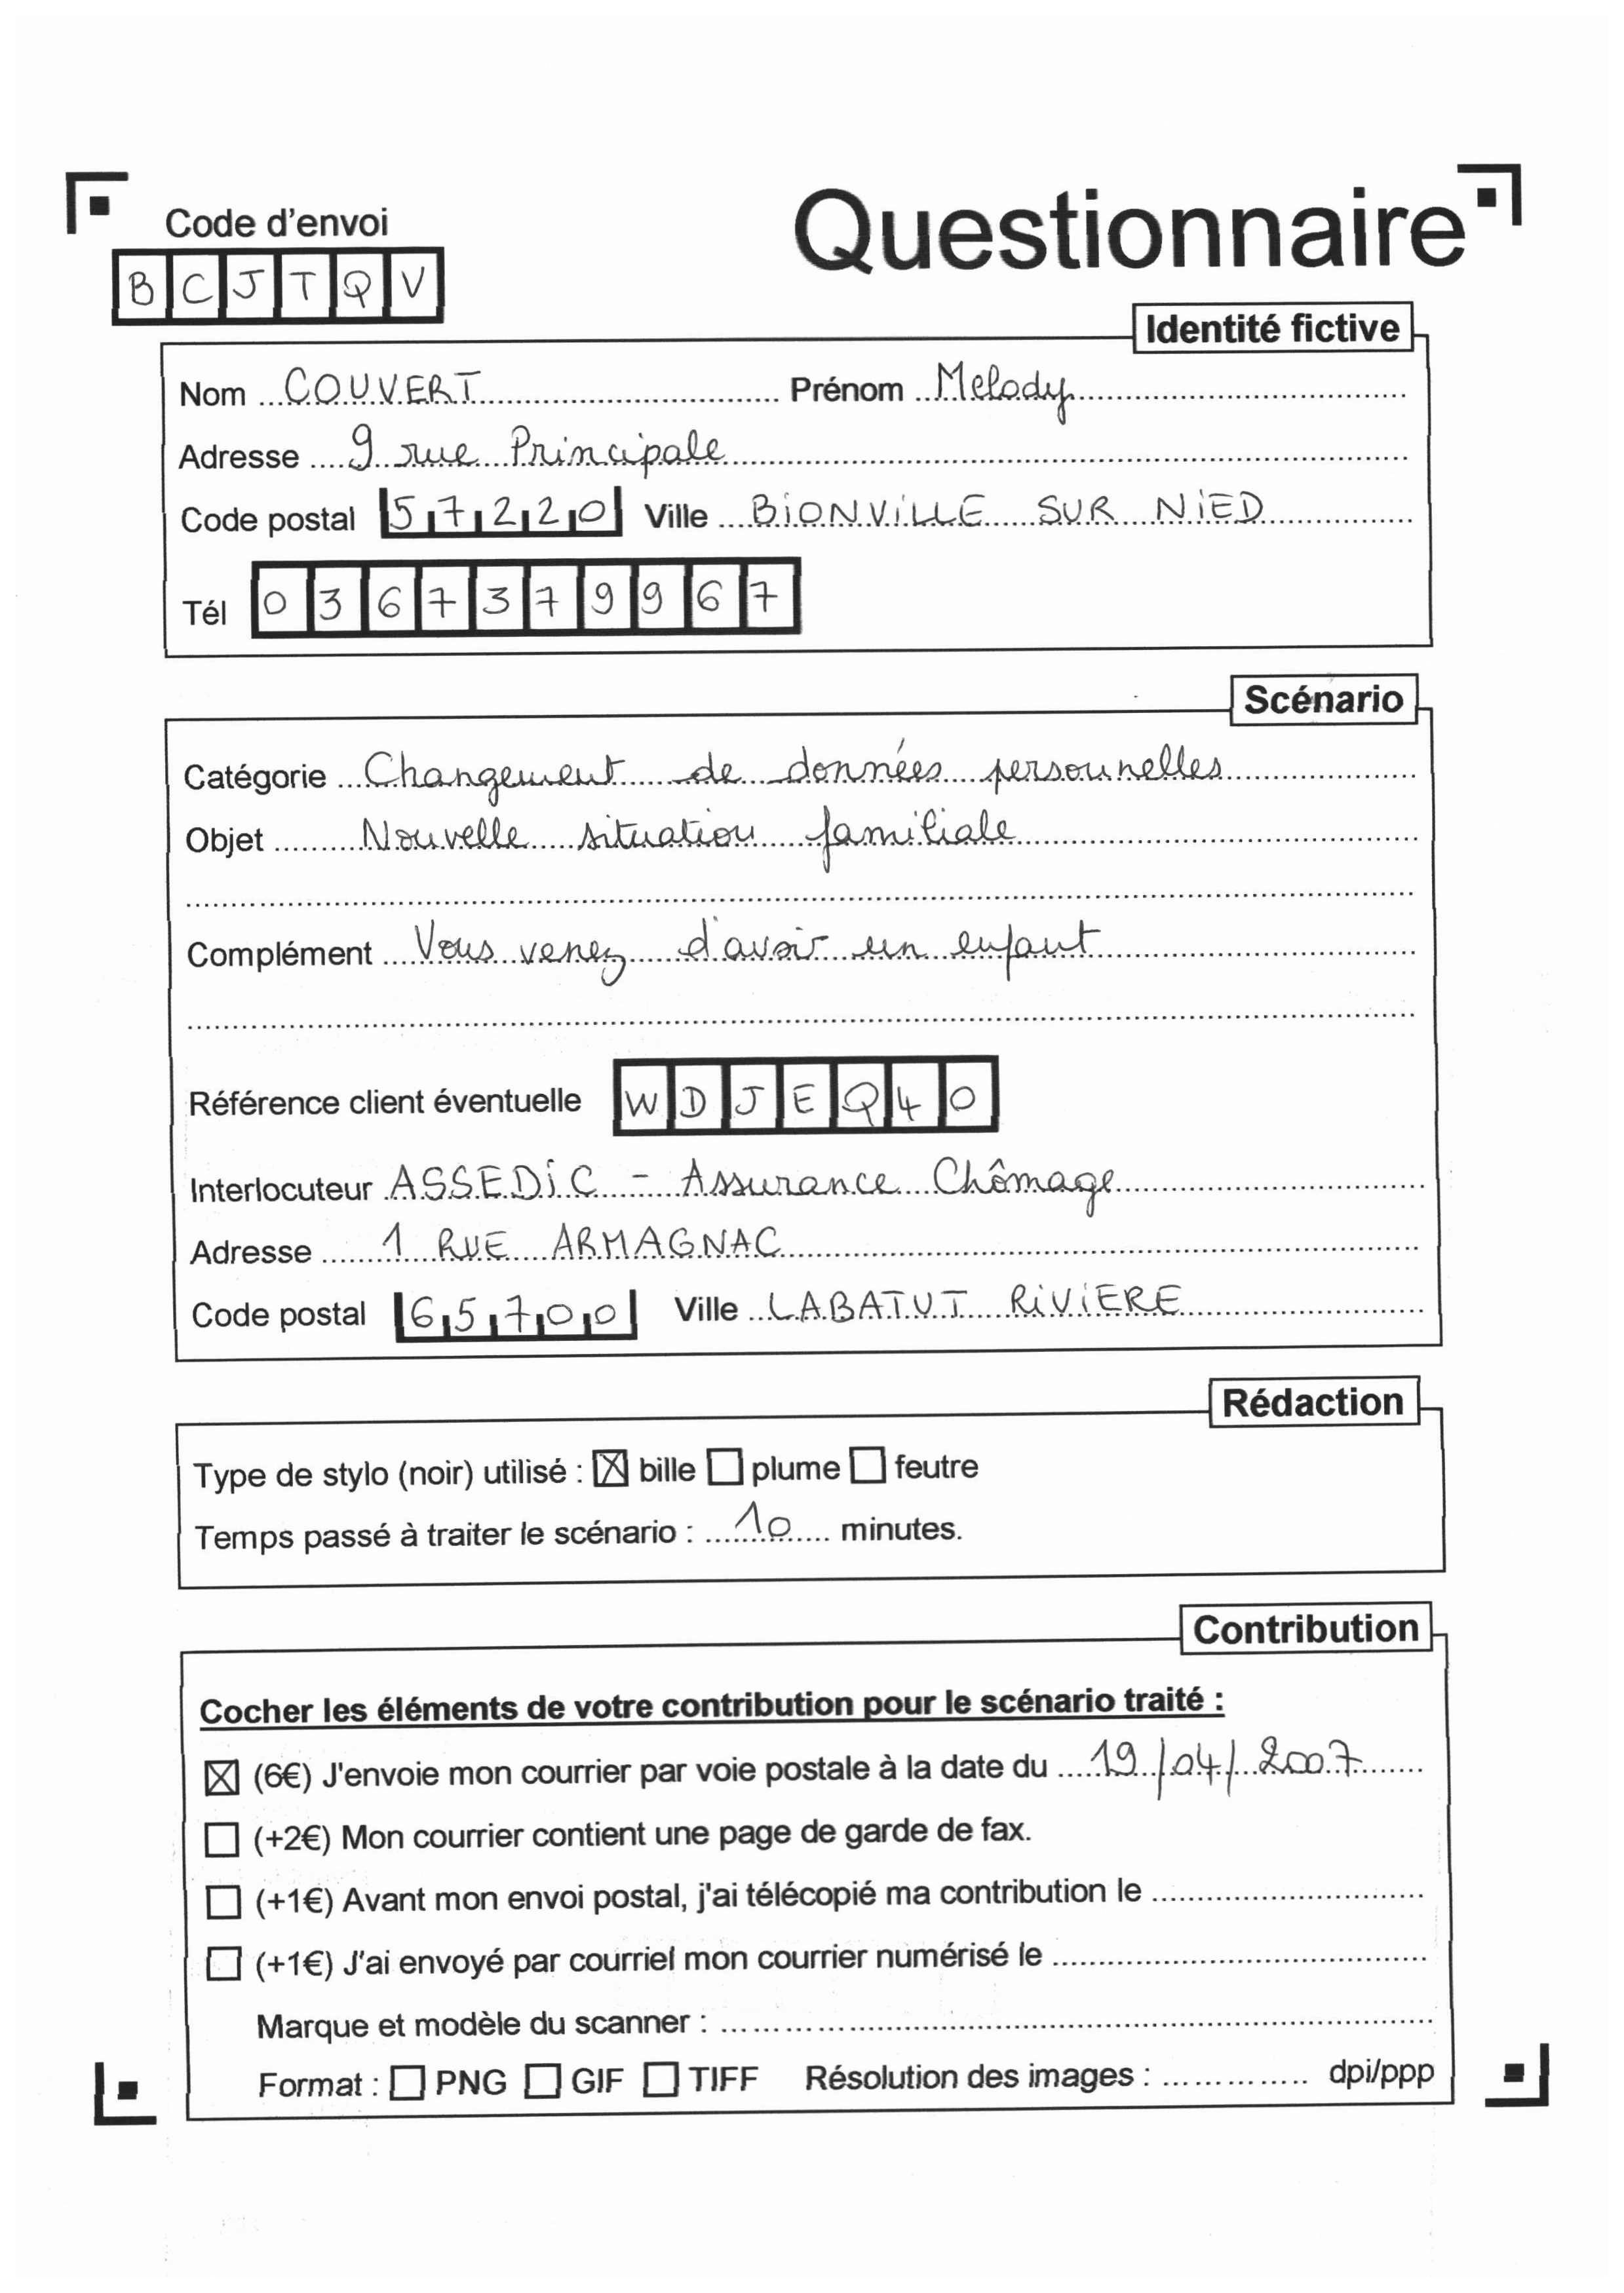 Code d'envoi
Questionnaire
BCJTQV
Identité fictive
Nom COUVERT Prénom Melody
Adresse 9 rue Principale
Code postal 57220 Ville BiONViLLE SUR NiED
Tél 0367379967
Scénario
Catégorie Changement de données personnelles
Objet Nouvelle situation familiale
Complément Vous venez d'avoir un enfant
Référence client éventuelle WDJEQ40
Interlocuteur ASSEDiC - Assurance Chômage
Adresse 1 RUE ARMAGNAC
Code postal 65700 Ville LABATUT RiViERE
Rédaction
Type de stylo (noir) utilisé : ☒ bille ☐ plume ☐ feutre
Temps passé à traiter le scénario : 10 minutes.
Contribution
Cocher les éléments de votre contribution pour le scénario traité :
☒ (6€) J'envoie mon courrier par voie postale à la date du 19/04/2007
☐ (+2€) Mon courrier contient une page de garde de fax.
☐ (+1€) Avant mon envoi postal, j'ai télécopié ma contribution le
☐ (+1€) J'ai envoyé par courriel mon courrier numérisé le
Marque et modèle du scanner :
Format : ☐ PNG ☐ GIF ☐ TIFF Résolution des images : dpi/ppp